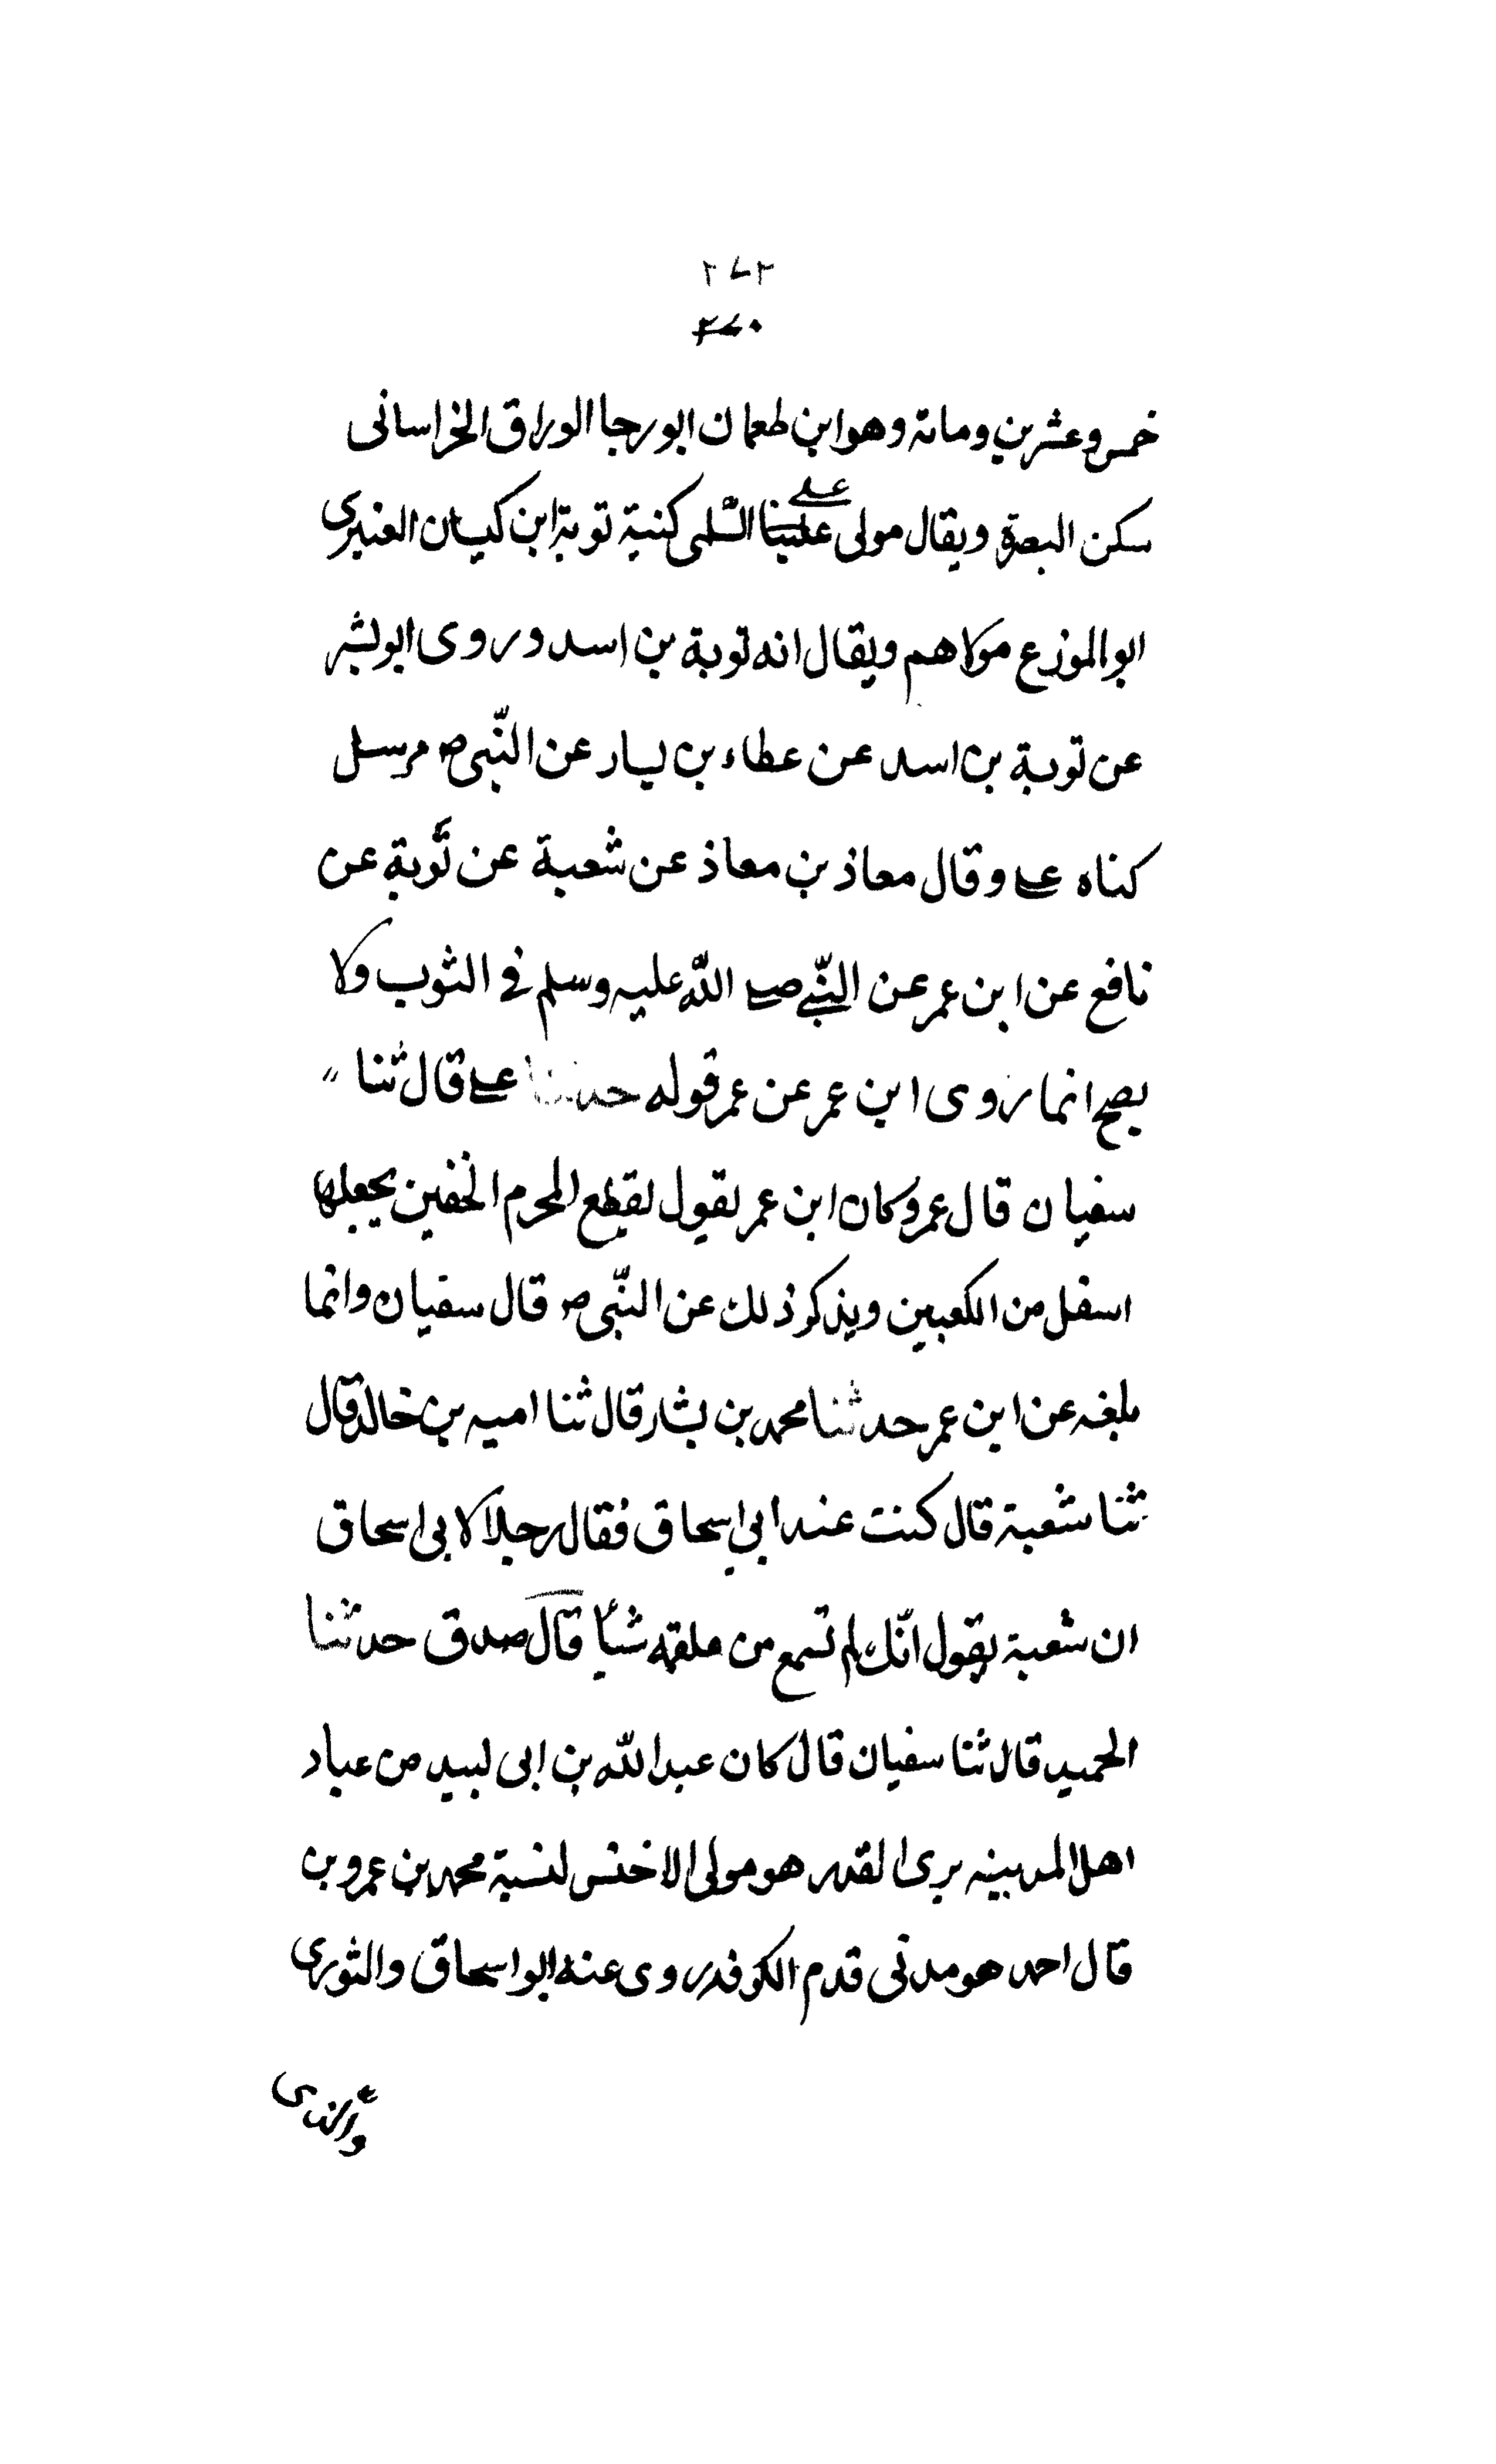 ٢٧٢
٢٧٠
خمس وعشرين ومائة وهو ابن طهمان ابو رجا الوراق الخراسانى
سكن البصرة ويقال مولى علينا على السّلمى كنية توبة ابن كيسان العنبرى
ابو المورع مولاهم ويقال انه توبة بن اسد وروى ابو بشر
عن توبة بن اسد عن عطاء بن يسار عن النّبى ص مرسل
كناه على وقال معاذ بن معاذ عن شعبة عن توبة عن
نافع عن ابن عمر عن النّبى صلى الله عليه وسلم فى الثوب ولا
يصح انما روى ابن عمر عن عمر قوله حدثنا على قال ثنا "
سفيان قال عمرو كان ابن عمر يقول يقطع المحرم الخفين يجعلها
اسفل من الكعبين ويذكر ذلك عن النّبى ص قال سفيان وانما
بلغه عن ابن عمر حدثنا محمد بن بشار قال ثنا اميه بن خالد قال
ثنا شعبة قال كنت عند ابى اسحاق فقال رجلا لابى اسحاق
ان شعبة يقول انّك لم تسمع من علقمه شيأ قال صدق حدثنا
الحميد قال ثنا سفيان قال كان عبد الله بن ابى لبيد من عباد
اهل المدينه يرى القدر هو مولى الاخنس لنسبة محمد بن عمرو بن
قال احمد هو مدنى قدم الكوفه روى عنه ابو اسحاق والثورى